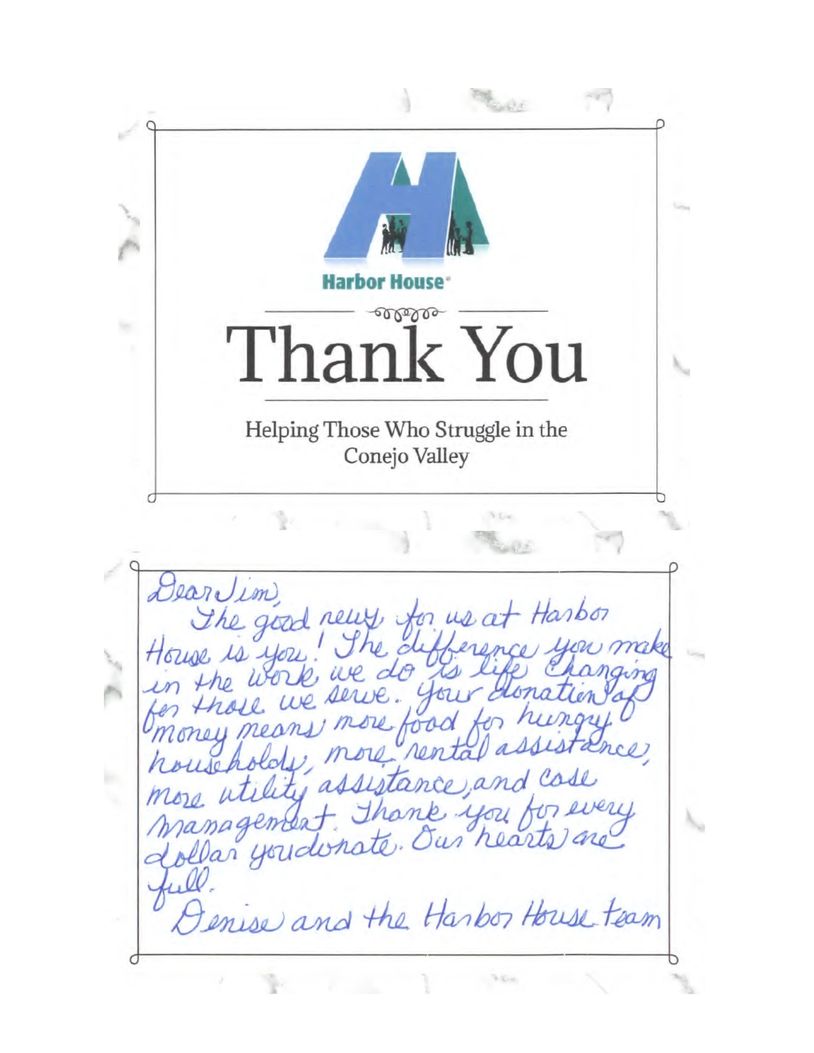 Harbor House®
Thank You
Helping Those Who Struggle in the
Conejo Valley
Dear Jim,
The good news for us at Harbor
House is you! The difference you make
in the work we do is life changing
for those we serve. Your donation of
money means more food for hungry
households, more rental assistance,
more utility assistance, and case
management. Thank you for every
dollar you donate. Our hearts are
full.
Denise and the Harbor House team